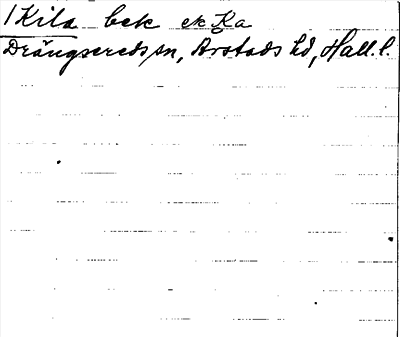 1 Kila bek ek Ka
Drängsereds sn, Årstads hd, Hall. l.